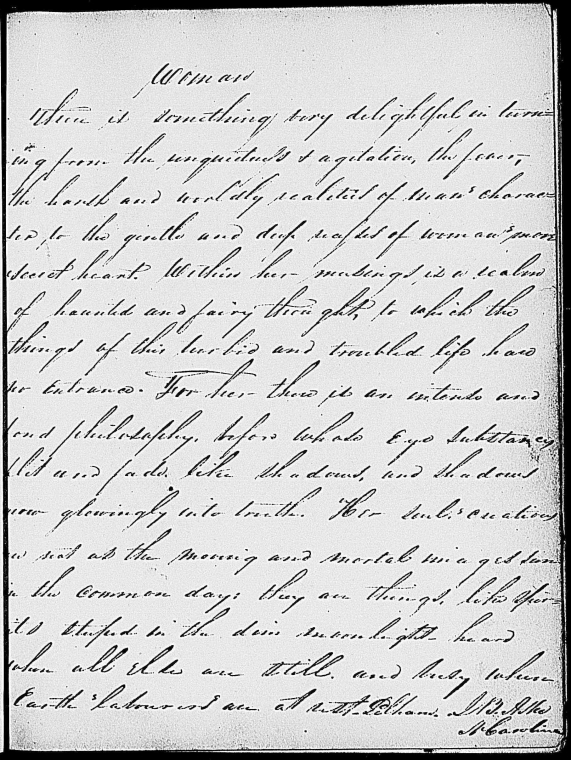 Woman
There is something very delightful in turn=
ing from the unquietness & agitation, the fever,
the harsh and worldly realities of man's charac=
ter, to the gentle and deep recesses of woman's more
secret heart. Within her musings, is a realm
of haunted and fairy thought, to which the
things of this turbid and troubled life have
no entrance. For her there is an intense and
fond philosophy, before whose eye substances
flit and fade like shadows, and shadows
grow glowingly into truth. Her soul's creations
are not as the moving and mortal images seen
in the common day: they are things, like spir=
its steeped in the dim moonlight heard
when all else are still, and busy when
Earth's labourers are at rest. Pelham. J. B. Ashe
N. Carolina